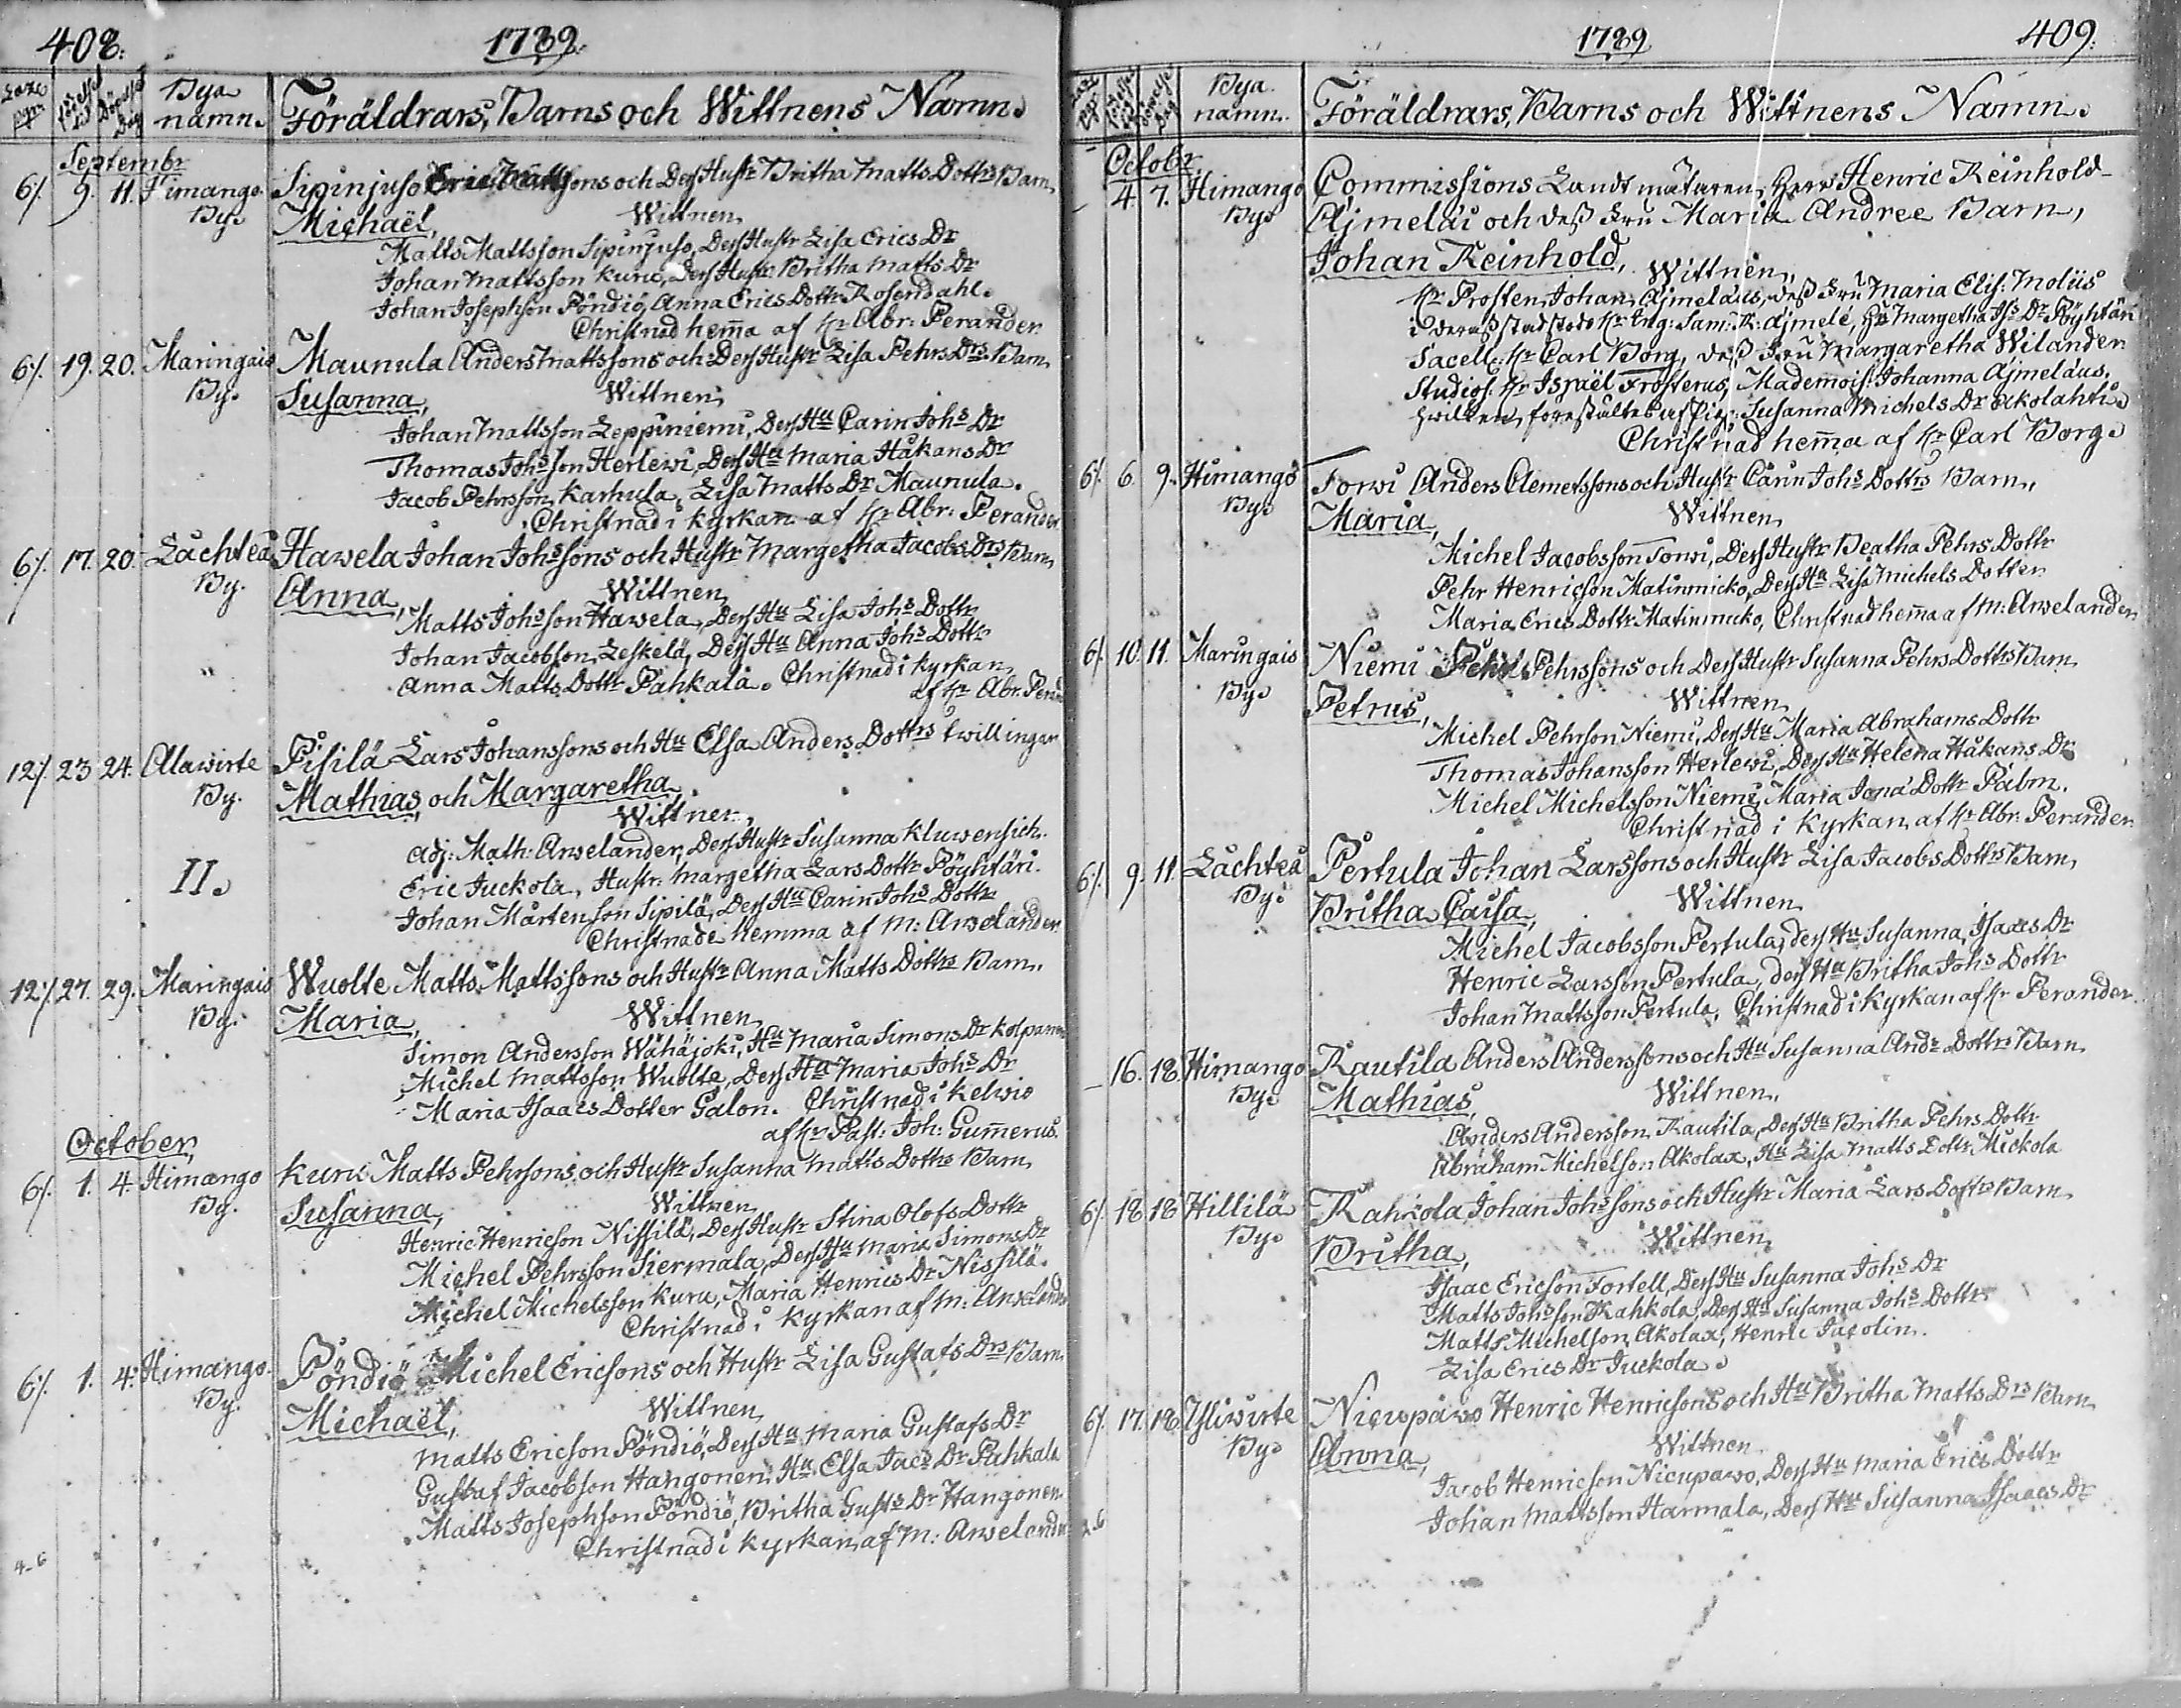 408.
1789.
Bya namn.
Föräldrars, Barns och Wittnens Namn.
Septembr
6/. 9. 11. Himango Sipinjuso Eric Mattssons och Dess Hustr Britha Matts Dottrs Barn,
By. Michaël, Wittnen,
Matts Mattsson Sipinjuso, Dess Hustr Lisa Erics Dr
Johan Mattsson Kuru, Dess Hustr Britha Matts Dr
Johan Josephson Pöndiö, Anna Erics Dottr Rosendahl.
Christnad hema af Hr Abr: Perander.
6/. 19. 20. Maringais Maunula Anders Mattssons och Dess Hustr Lisa Pehrs Drs Barn,
By. Susanna, Wittnen,
Johan Mattsson Leppiniemi, Dess Hu Carin Johs Dr
Thomas Johsson Herlewi, Dess Hu Maria Håkans Dr
Jacob Pehrsson Karhula, Lisa Matts Dr Maunula.
Christnad i Kyrkan af Hr Abr: Perander.
6/. 17. 20. Lachteå Hawela Johan Johssons och Hustr Margetha Jacobs Drs Barn,
By. Anna, Wittnen,
Matts Johsson Hawela, Dess Hu Lisa Johs Dottr
Johan Jacobsson Leskelä, Dess Hu Anna Johs Dottr
Anna Matts Dottr Pahkala. Christnad i Kyrkan
af Hr Abr. Peran
12/. 23. 24. Alawirte Pisilä Lars Johanssons och Hu Elsa Anders Dottrs twillingar
By. Mathias, och Margaretha.
Wittnen,
Adj: Math: Arwelander, Dess Hustr Susanna Kluwensich.
II. Eric Juckola, Hustr: Margetha Lars Dottr Pöyhtäri.
Johan Mårtensson Sipilä, Dess Hu Carin Johs Dottr
Christnade hemma af M: Arwelander.
12/. 27. 29. Maringais Wuolte Matts Mattssons och Hustr Anna Matts Dottrs Barn,
By. Maria, Wittnen,
Simon Andersson Wähäjoki, Hu Maria Simons Dr Kolpanen
Michel Mattsson Wuolte, Dess Hu Maria Johs Dr
Maria Isaacs Dotter Galon. Christnad i Kelwio
af Hr Past: Joh: Gumerus.
October,
6/. 1. 4. Himango Kuru Matts Pehrsons och Hustr Susanna Matts Dottrs Barn,
By. Susanna, Wittnen,
Henric Henricson Nissilä, Dess Hustr Stina Olofs Dottr
Michel Pehrsson Siermala, Dess Hu Maria Simons Dr
Michel Michelsson Kuru, Maria Henrics Dr Nissilä.
Christnad i Kyrkan af M: Arwelander
6/. 1. 4. Himango. Pöndiö Michel Ericsons och Hustr Lisa Gustafs Drs Barn.
By. Michaël, Wittnen,
Matts Ericson Pöndiö, Dess Hu Maria Gustafs Dr
Gustaf Jacobson Hangonen, Hu Elsa Jacs Dr Pahkala
Matts Josephson Pöndiö, Britha Gusts Dr Hangonen.
Christnad i Kyrkan af M: Arwelander
4-6
1789
409.
Bya namn.
Föräldrars, Barns och Wittnens Namn.
Octobr,
4. 7. Himango Commissions Landtmätaren, Herr Henric Reinhold
By. Ajmelai och dess Fru Maria Andree Barn,
Johan Reinhold, Wittnen,
Hr Prosten, Johan Ajmelæus, dess Fru Maria Elis: Moliis
i deras stad stodo Hr Ing: Sam: R: Ajmelé, Hu Margetha Is Dr Pöyhtäri
Sacell: Hr Carl Borg, dess Fru Margaretha Wilander
Studios: Hr Israël Frosterus, Mademois: Johanna Ajmeläus,
hwilken föreställtes af Pig: Susanna Michels Dr Akolahti.
Christnad hema af Hr Carl Borg.
6/. 6. 9. Himango Torwi Anders Clemetssons och Hustr Carin Johs Dottrs Barn,
By. Maria, Wittnen,
Michel Jacobsson Torwi, Dess Hustr Beatha Pehrs Dottr
Pehr Henricson Matinmicko, Dess Hu Lisa Michels Dotter
Maria Erics Dottr Matinmicko, Christnad hema af M: Arwelander
6/. 10. 11. Maringais Niemi Pehr Pehrssons och Dess Hustr Susanna Pehrs Dottrs Barn
By. Petrus, Wittnen,
Michel Pehrson Niemi, Dess Hu Maria Abrahams Dottr
Thomas Johansson Herlewi, Dess Hu Helena Håkans Dr
Michel Michelsson Niemi, Maria Jona Dottr Palm.
Christnad i Kyrkan af Hr Abr: Perander
6/. 9. 11. Lachteå Pertula Johan Larssons och Hustr Lisa Jacobs Dottrs Barn,
By. Britha Caisa, Wittnen,
Michel Jacobsson Pertula, dess Hu Susanna Isaacs Dr
Henric Larsson Pertula, dess Hu Britha Johs Dottr
Johan Mattsson Pertula, Christnad i Kyrkan af Hr Perander.
16. 18. Himango Rautila Anders Anderssons och Hu Susanna Andr Dottrs Barn,
By. Mathias, Wittnen,
Anders Andersson Rautila, Dess Hu Britha Pehrs Dottr
Abraham Michelson Akolax, Hu Lisa Matts Dottr Mickola
6/. 18 18 Hillilä Rahkola Johan Johssons och Hustr Maria Lars Dottrs Barn,
By. Britha, Wittnen,
Isaac Ericson Fortell, Dess Hu Susanna Johs Dr
Matts Johsson Rahkola, Dess Hu Susanna Johs Dottr
Matts Michelson Akolax, Henric Jacolin.
Lisa Erics Dr Juckola.
6/. 17. 18. Yliwirte Nicupawo Henric Henricsons och Hu Britha Matts Drs Barn
By. Anna, Wittnen
Jacob Henricson Nicupawo, Dess Hu Maria Erics Dottr
Johan Mattsson Harmala, Dess Hu Susanna Isaacs Dr